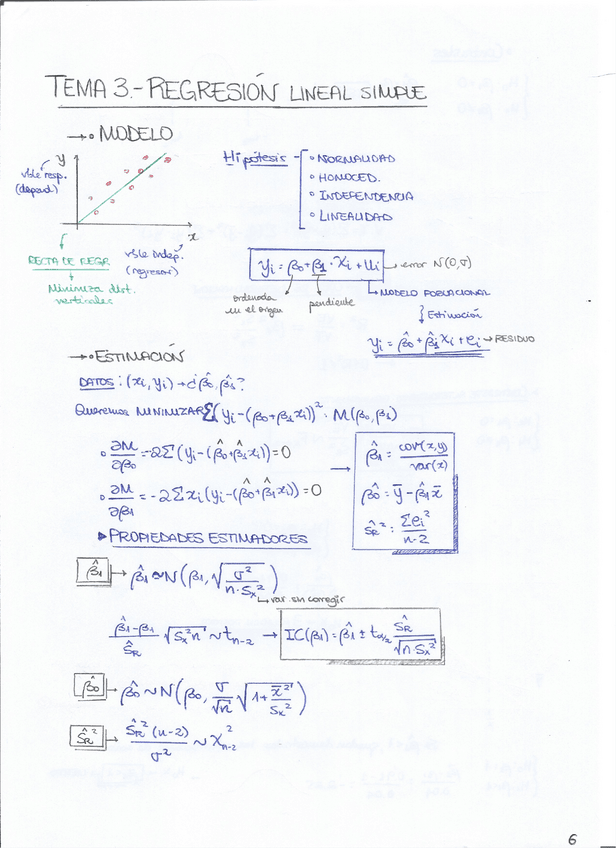 TEMA 3.- REGRESIÓN LINEAL SIMPLE
→ • MODELO
y
vble resp.
(depend.)
x
RECTA DE REGR
Minimiza dist.
verticales
vble indep.
(regresor)
Hipótesis
• NORMALIDAD
• HOMOCED.
• INDEPENDENCIA
• LINEALIDAD
yi = β0 + β1 · xi + ui → error N(0,σ)
ordenada en el origen
pendiente
→ MODELO POBLACIONAL
Estimación
yi = β̂0 + β̂1 xi + ei → RESIDUO
→ • ESTIMACIÓN
DATOS: (xi, yi) → ¿β̂0, β̂1?
Queremos MINIMIZAR Σ(yi - (β0 + β1xi))² = M(β0, β1)
• ∂M/∂β0 = -2Σ(yi - (β̂0 + β̂1xi)) = 0
• ∂M/∂β1 = -2Σxi(yi - (β̂0 + β̂1xi)) = 0
→
β̂1 = cov(x,y)/var(x)
β̂0 = ȳ - β̂1x̄
ŜR² = Σei²/n-2
▸ PROPIEDADES ESTIMADORES
β̂1 → β̂1 ~ N(β1, √(σ²/n·Sx²))
→ var. sin corregir
β̂1-β1/ŜR √(Sx²n) ~ tn-2 → IC(β1) = β̂1 ± tα/2 ŜR/√(n Sx²)
β̂0 → β̂0 ~ N(β0, σ/√n √(1 + x̄²/Sx²))
ŜR² → ŜR²(n-2)/σ² ~ χ²n-2
6